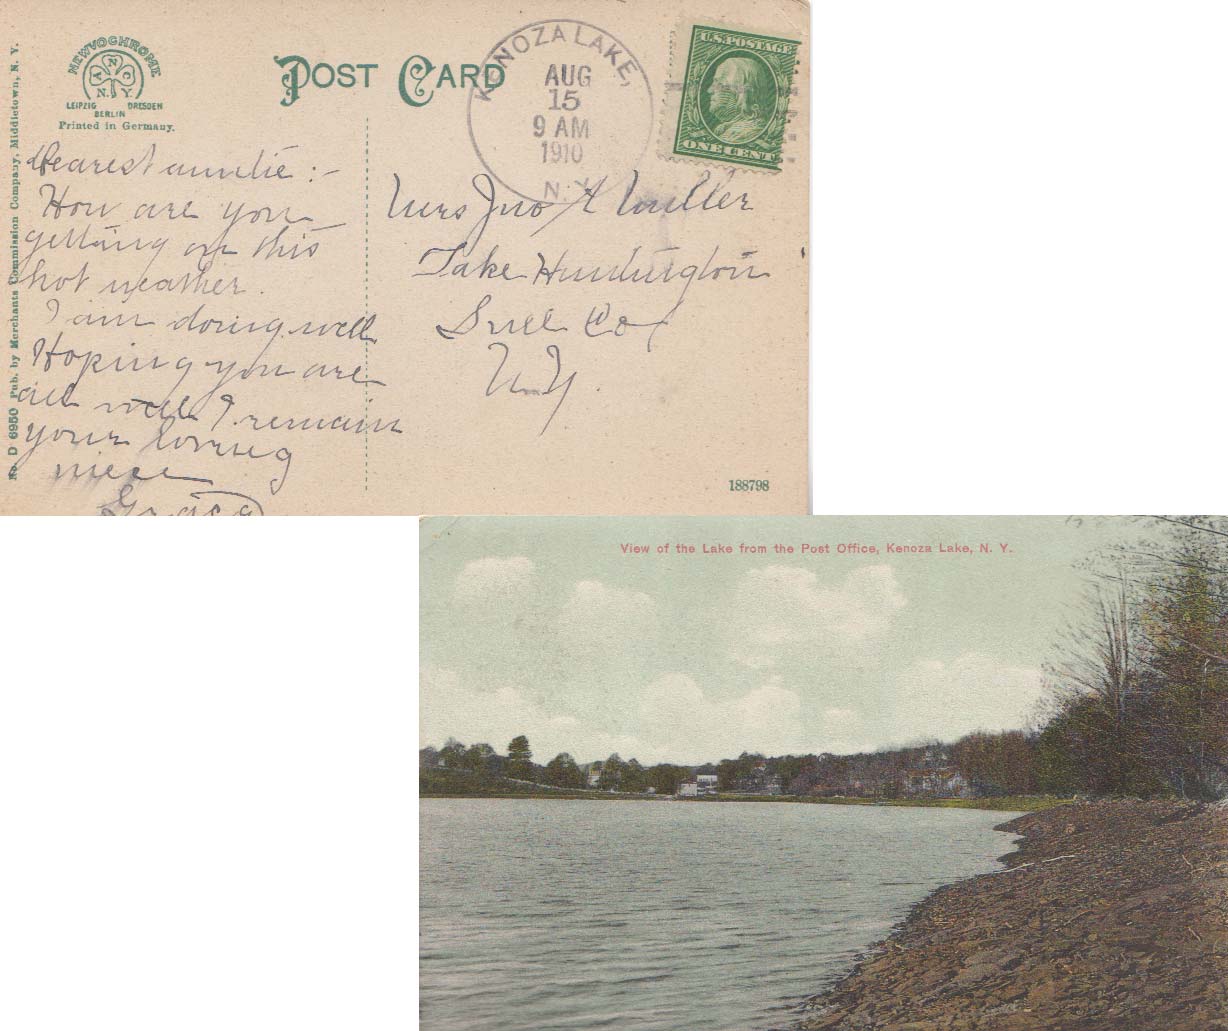 No. D 6950 Pub. by Merchants Commission Company, Middletown, N. Y.
NEWVOCHROME
A N C
N. Y.
LEIPZIG DRESDEN
BERLIN
Printed in Germany.
POST CARD
KENOZA LAKE,
AUG
15
9 AM
1910
N. Y.
U.S. POSTAGE
ONE CENT
Dearest auntie :-
How are you
getting on this
hot weather.
I am doing well
Hoping you are
all well I remain
your loving
niece
Mrs Jno A Miller
Lake Huntington
Sull Co
N.Y.
188798
View of the Lake from the Post Office, Kenoza Lake, N. Y.